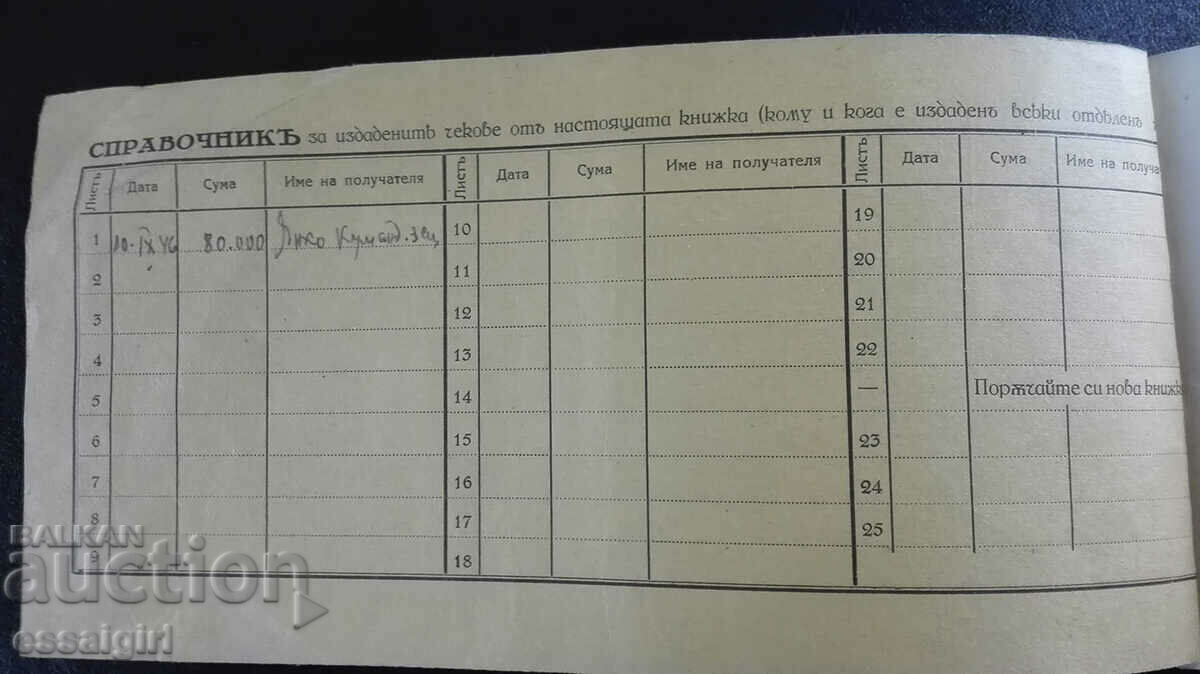 СПРАВОЧНИКЪ за издаденитѣ чекове отъ настоящата книжка (кому и кога е издаденъ всѣки отдѣленъ
Листъ Дата Сума Име на получателя Листъ Дата Сума Име на получателя Листъ Дата Сума Име на получа
1 10·IX 46 80.000 10 19
2 11 20
3 12 21
4 13 22
5 14 — Порѫчайте си нова книжк
6 15 23
7 16 24
8 17 25
9 18
BALKAN
auction
essaigirl